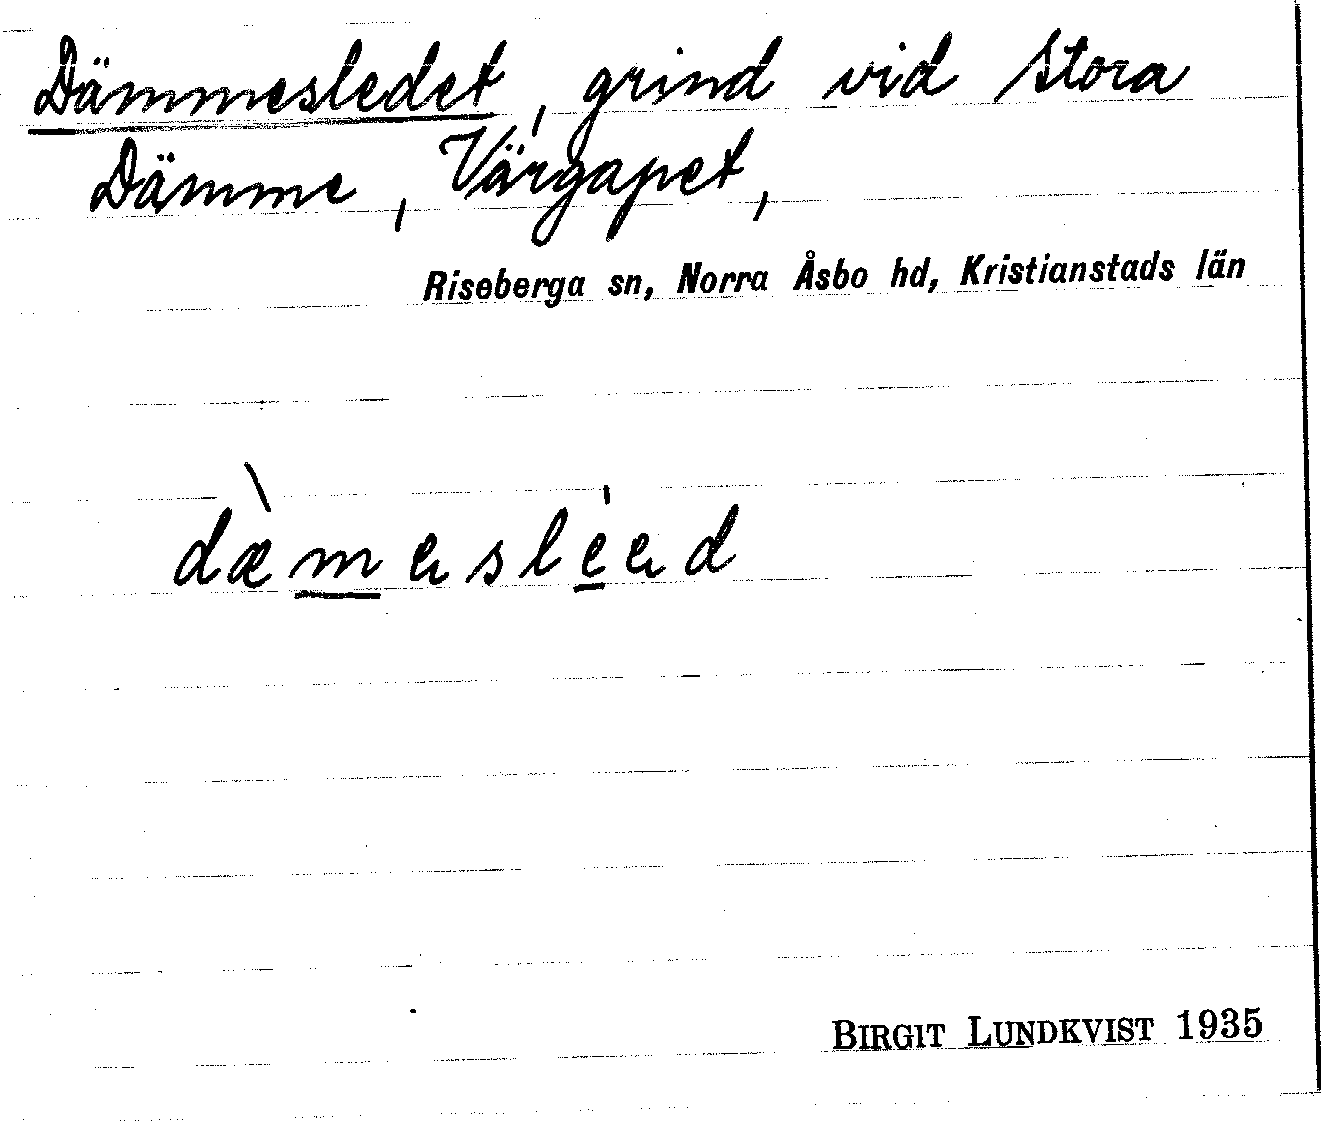 Dämmesledet, grind vid Stora
Dämme, Värgapet,
Riseberga sn, Norra Åsbo hd, Kristianstads län
dæ̀mesléed
BIRGIT LUNDKVIST 1935